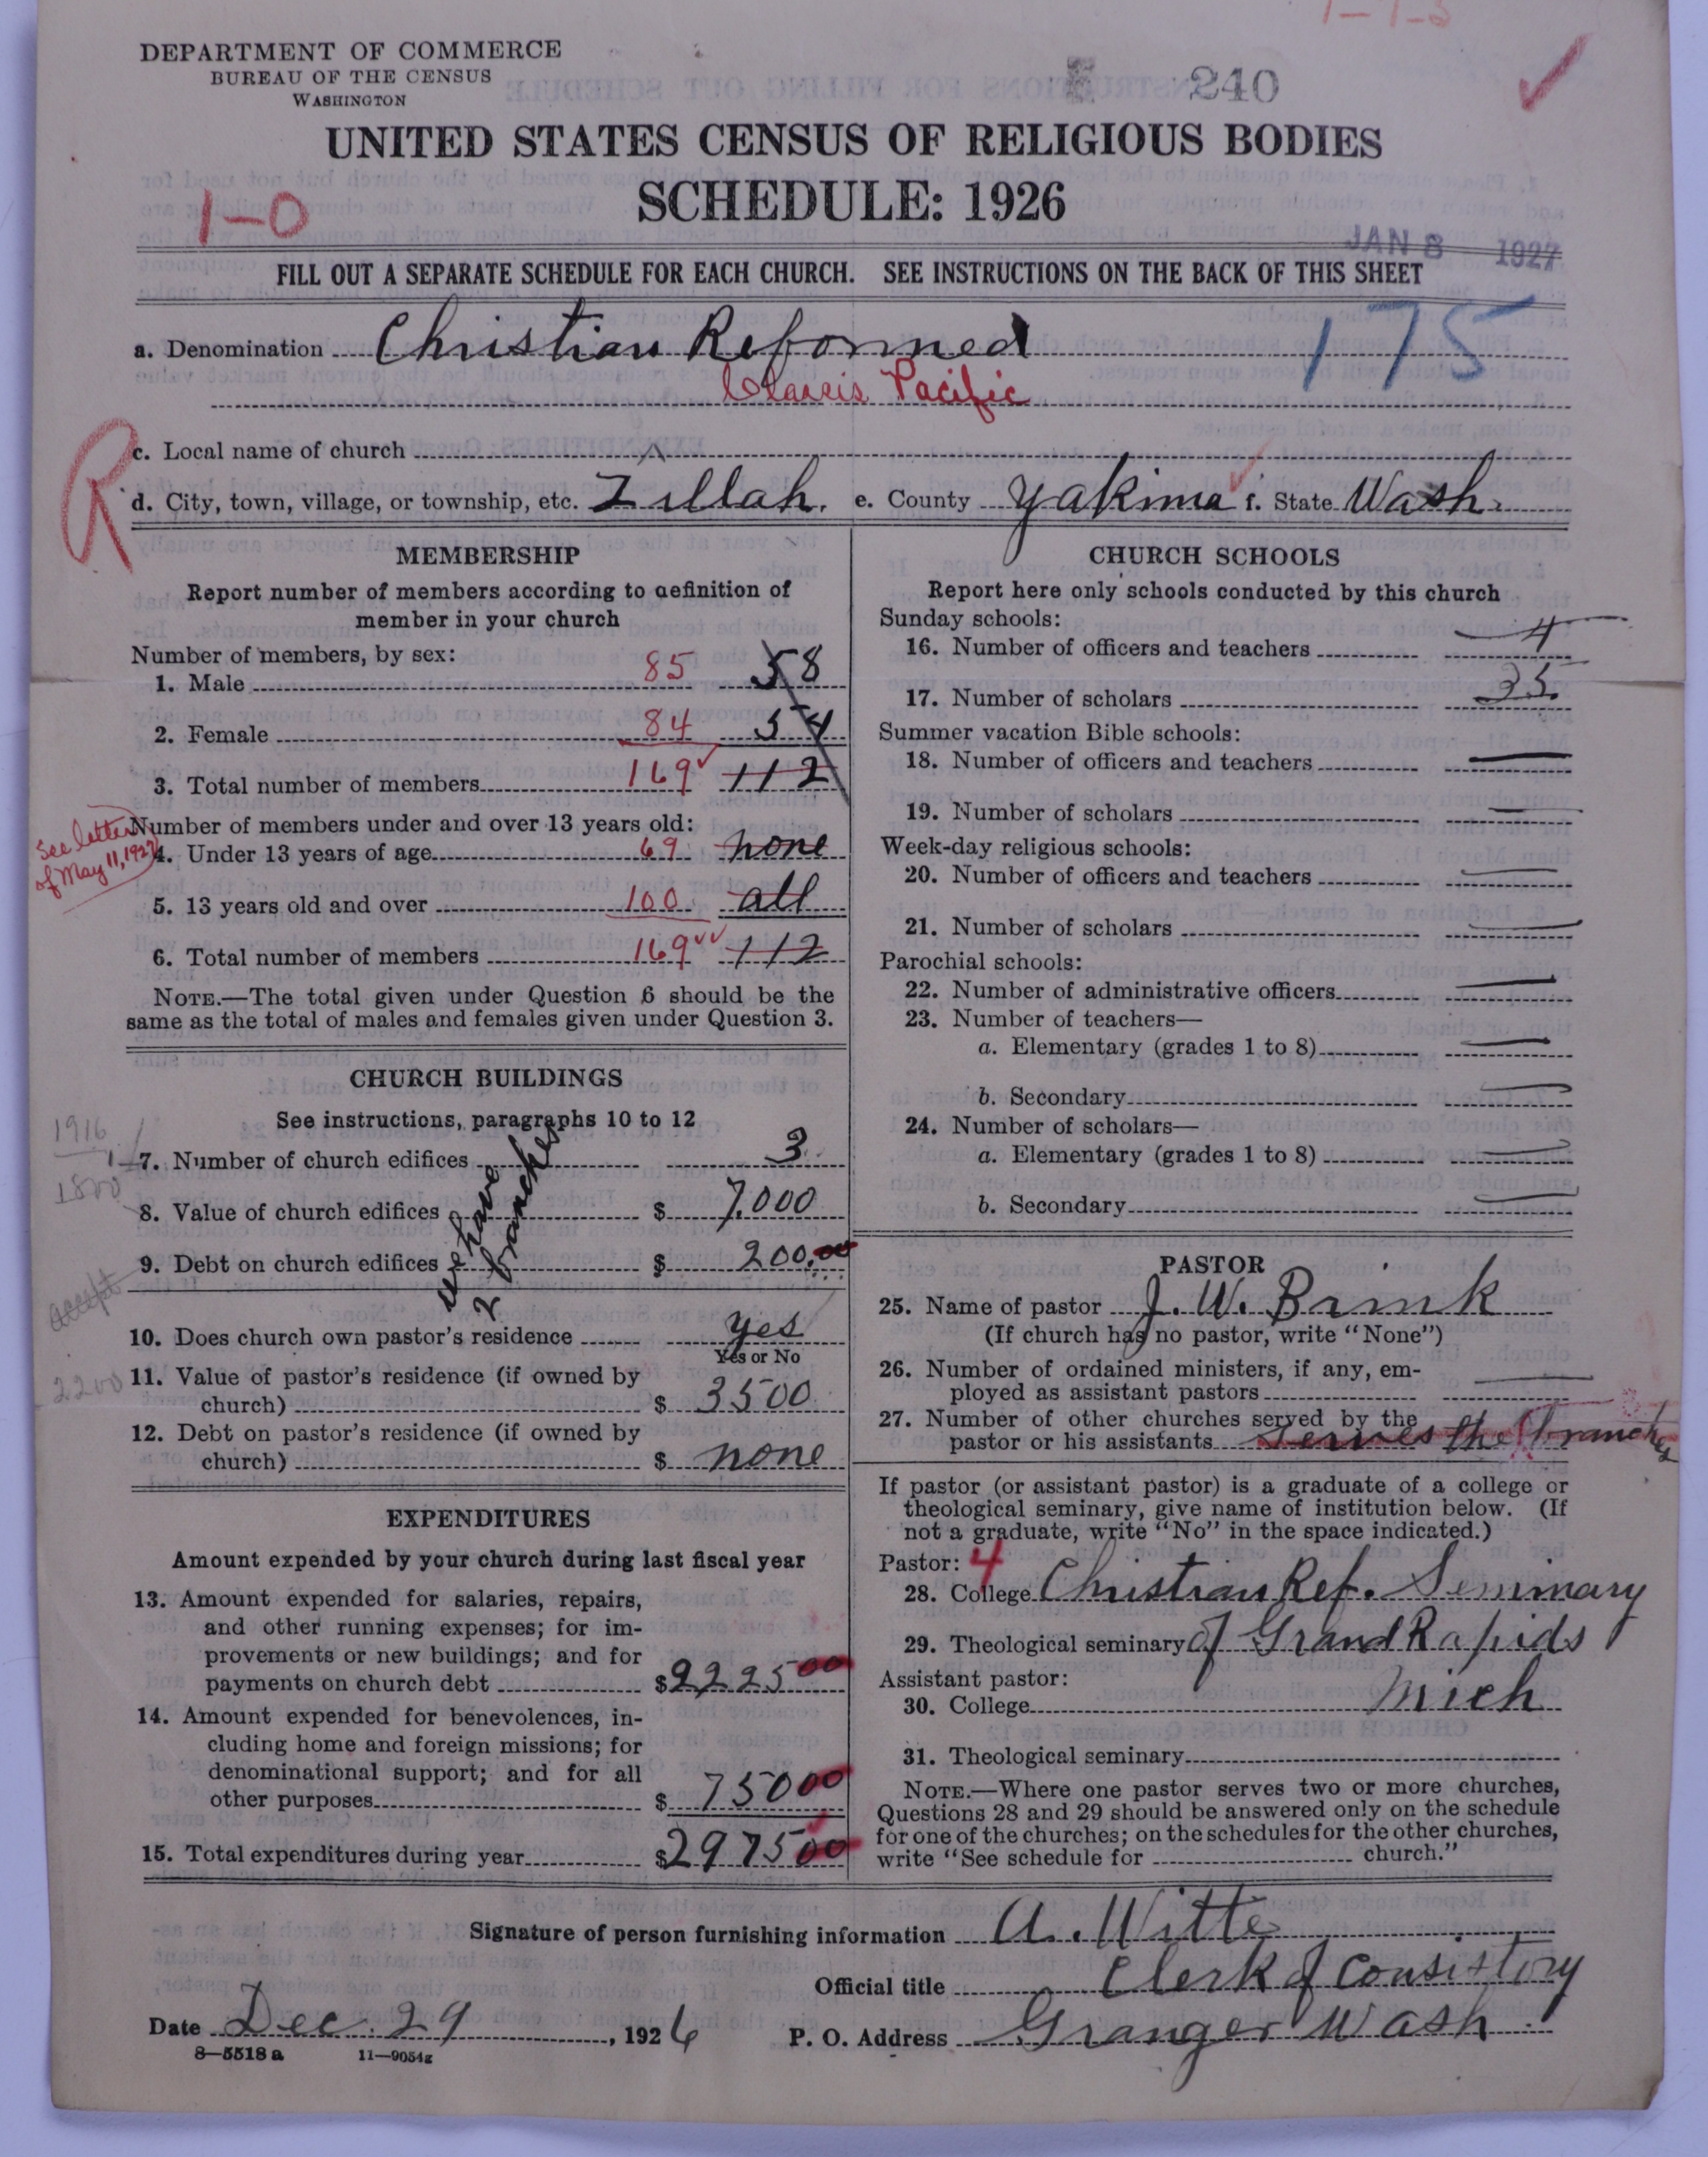 1-1-3
DEPARTMENT OF COMMERCE
BUREAU OF THE CENSUS
WASHINGTON
240
UNITED STATES CENSUS OF RELIGIOUS BODIES
SCHEDULE: 1926
1-0
JAN 8 1927
FILL OUT A SEPARATE SCHEDULE FOR EACH CHURCH. SEE INSTRUCTIONS ON THE BACK OF THIS SHEET
a. Denomination Christian Reformed
175
Classis Pacific
R
c. Local name of church
d. City, town, village, or township, etc. Zillah. e. County Yakima f. State Wash.
MEMBERSHIP
Report number of members according to definition of
member in your church
Number of members, by sex:
1. Male 85 58
2. Female 84 54
3. Total number of members 169 112
Number of members under and over 13 years old:
See letter
of May 11, 1927
4. Under 13 years of age 69 none
5. 13 years old and over 100 all
6. Total number of members 169 112
NOTE.—The total given under Question 6 should be the
same as the total of males and females given under Question 3.
CHURCH BUILDINGS
See instructions, paragraphs 10 to 12
1916
1
7. Number of church edifices 3
1800
8. Value of church edifices $ 7,000
9. Debt on church edifices $ 200.00
we have
2 branches
accept
10. Does church own pastor's residence yes
Yes or No
2200
11. Value of pastor's residence (if owned by
church) $ 3500
12. Debt on pastor's residence (if owned by
church) $ none
EXPENDITURES
Amount expended by your church during last fiscal year
13. Amount expended for salaries, repairs,
and other running expenses; for im-
provements or new buildings; and for
payments on church debt $2225 00
14. Amount expended for benevolences, in-
cluding home and foreign missions; for
denominational support; and for all
other purposes $ 750 00
15. Total expenditures during year $2975 00
CHURCH SCHOOLS
Report here only schools conducted by this church
Sunday schools:
16. Number of officers and teachers 4
17. Number of scholars 35.
Summer vacation Bible schools:
18. Number of officers and teachers —
19. Number of scholars —
Week-day religious schools:
20. Number of officers and teachers —
21. Number of scholars —
Parochial schools:
22. Number of administrative officers —
23. Number of teachers—
a. Elementary (grades 1 to 8) —
b. Secondary —
24. Number of scholars—
a. Elementary (grades 1 to 8) —
b. Secondary —
PASTOR
25. Name of pastor J. W. Brink
(If church has no pastor, write "None")
26. Number of ordained ministers, if any, em-
ployed as assistant pastors —
27. Number of other churches served by the
pastor or his assistants serves the branches
If pastor (or assistant pastor) is a graduate of a college or
theological seminary, give name of institution below. (If
not a graduate, write "No" in the space indicated.)
Pastor: 4
28. College Christian Ref. Seminary
29. Theological seminary of Grand Rapids
Assistant pastor:
Mich
30. College
31. Theological seminary
NOTE.—Where one pastor serves two or more churches,
Questions 28 and 29 should be answered only on the schedule
for one of the churches; on the schedules for the other churches,
write "See schedule for church."
Signature of person furnishing information A. Witte
Official title Clerk of Consistory
Date Dec. 29, 1926 P. O. Address Granger Wash.
8—5518 a 11—9054g